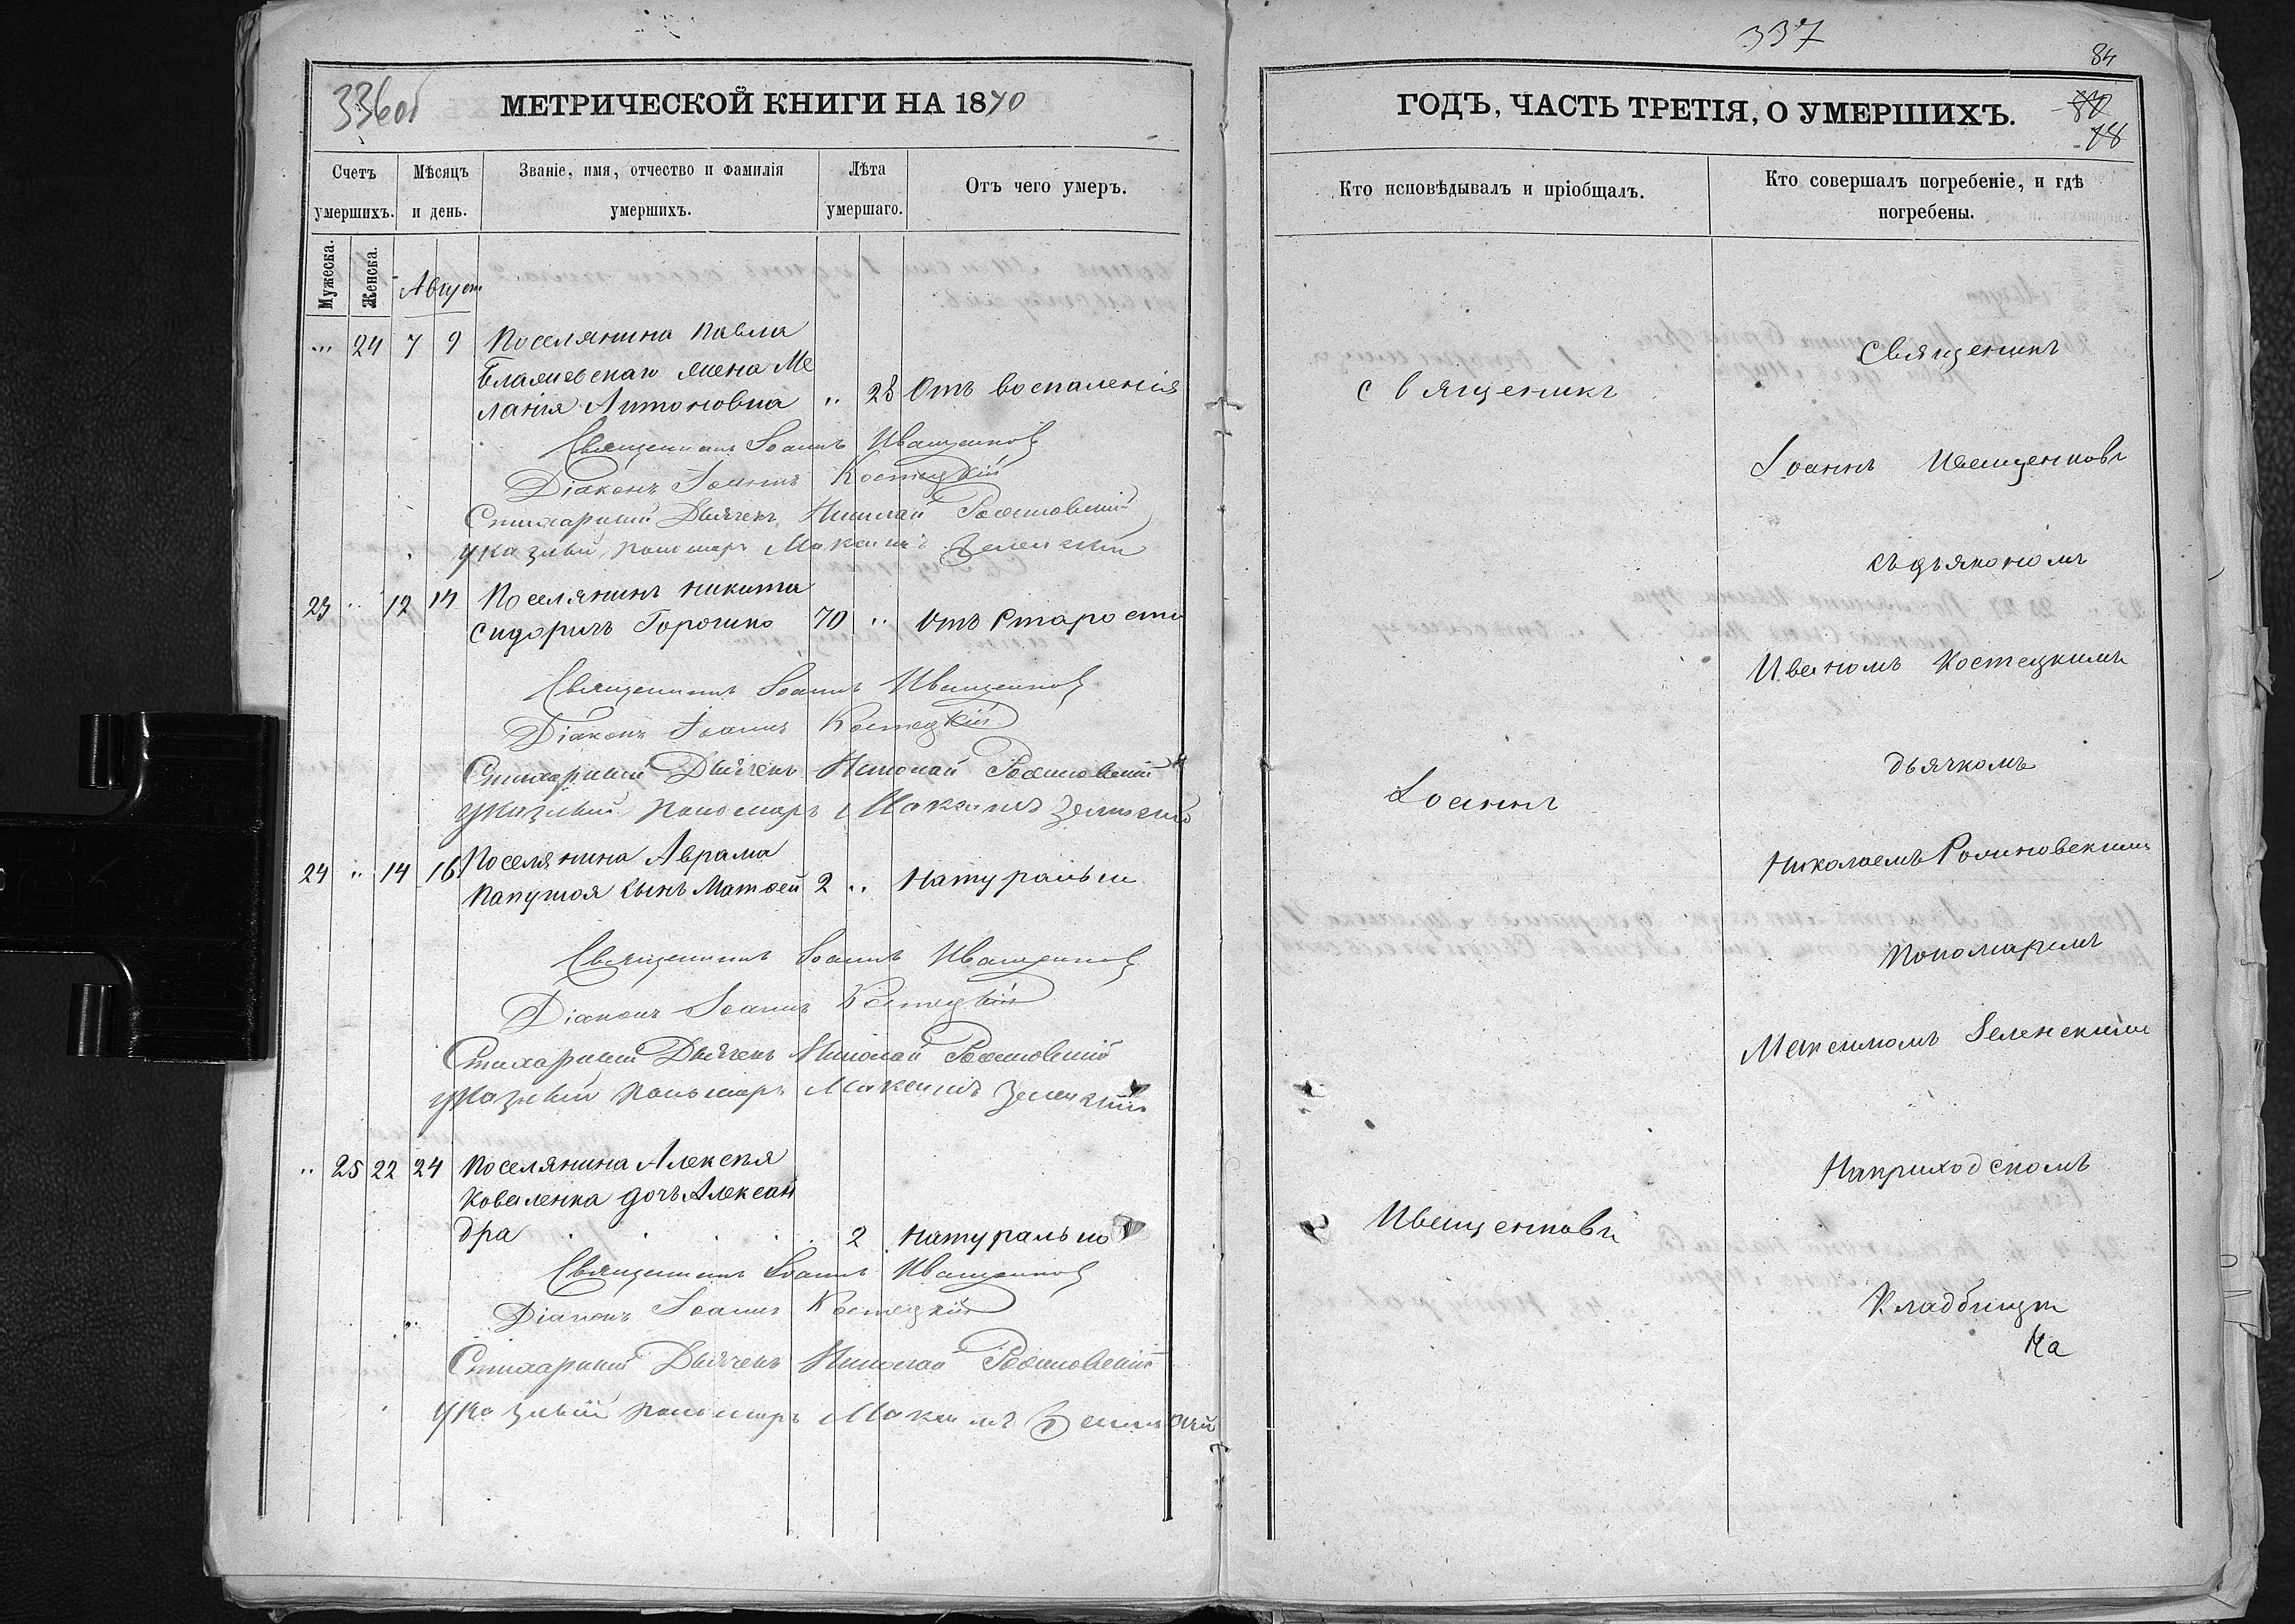 336об
МЕТРИЧЕСКОЙ КНИГИ НА 1870
Счетъ умершихъ.
Мѣсяцъ и день.
Званіе, имя, отчество и фамилія умершихъ.
Лѣта умершаго.
Отъ чего умеръ.
Мужеска.
Женска.
Август
24 7 9 Поселянина Павла
жена Ме
ланія Антоновна 28 Отъ воспаленія
Священникъ Іоаннъ Иващенковъ
Діаконъ Іоаннъ Костецкій
Стихарный Дьячекъ Николай
Указный пономарь Максимъ Зеленскій
23 12 14 Поселянинъ Никита
Сидоричъ 70 Отъ Старости
Священникъ Іоаннъ Иващенковъ
Діаконъ Іоаннъ Костецкій
Стихарный Дьячекъ Николай
Указный пономарь Максимъ Зеленскій
24 14 16 Поселянина Аврама
сынъ Матвей 2 Натурально
Священникъ Іоаннъ Иващенковъ
Діаконъ Іоаннъ Костецкій
Стихарный Дьячекъ Николай
Указный пономарь Максимъ Зеленскій
25 22 24 Поселянина Алексѣя
Коваленка дочь Алексан
дра 2 Натурально
Священникъ Іоаннъ Иващенковъ
Діаконъ Іоаннъ Костецкій
Стихарный Дьячекъ Николай
Указный пономарь Максимъ Зеленскій
337
84
78
ГОДЪ, ЧАСТЬ ТРЕТІЯ, О УМЕРШИХЪ.
Кто исповѣдывалъ и пріобщалъ.
Кто совершалъ погребеніе, и гдѣ погребены.
Священикъ
Іоаннъ
Иващенковъ
Священикъ
Іоаннъ Иващенковъ
съ дьякономъ
Иваномъ Костецкимъ
дьячкомъ
Николаемъ
Пономаремъ
Максимомъ Зеленскимъ
На приходскомъ
Кладбищи